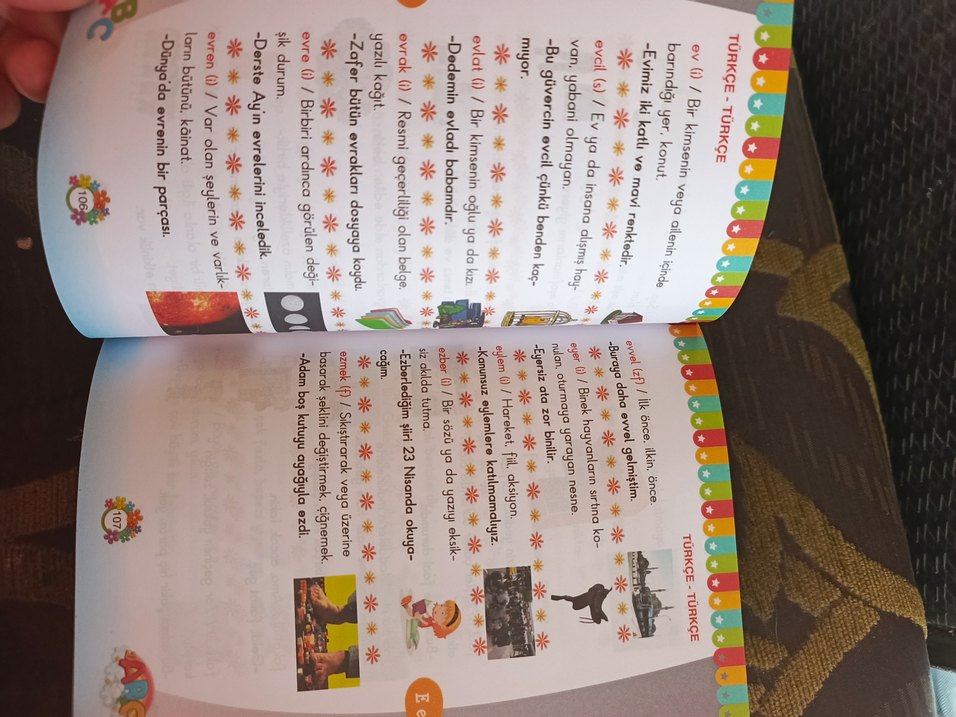 TÜRKÇE - TÜRKÇE
ev (i) / Bir kimsenin veya ailenin içinde
barındığı yer, konut.
-Evimiz iki katlı ve mavi renktedir.
evcil (s) / Ev ya da insana alışmış hay-
van, yabani olmayan.
-Bu güvercin evcil çünkü benden kaç-
mıyor.
evlat (i) / Bir kimsenin oğlu ya da kızı.
-Dedemin evladı babamdır.
evrak (i) / Resmi geçerliliği olan belge,
yazılı kağıt.
-Zafer bütün evrakları dosyaya koydu.
evre (i) / Birbiri ardınca görülen deği-
şik durum.
-Derste Ay'ın evrelerini inceledik.
evren (i) / Var olan şeylerin ve varlık-
ların bütünü, kâinat.
-Dünya'da evrenin bir parçası.
106
TÜRKÇE - TÜRKÇE
evvel (zf) / İlk önce, ilkin, önce.
-Buraya daha evvel gelmiştim.
eyer (i) / Binek hayvanların sırtına ko-
nulan, oturmaya yarayan nesne.
-Eyersiz ata zor binilir.
eylem (i) / Hareket, fiil, aksiyon.
-Kanunsuz eylemlere katılmamalıyız.
ezber (i) / Bir sözü ya da yazıyı eksik-
siz akılda tutma.
-Ezberlediğim şiiri 23 Nisanda okuya-
cağım.
ezmek (f) / Sıkıştırarak veya üzerine
basarak şeklini değiştirmek, çiğnemek.
-Adam boş kutuyu ayağıyla ezdi.
107
E e